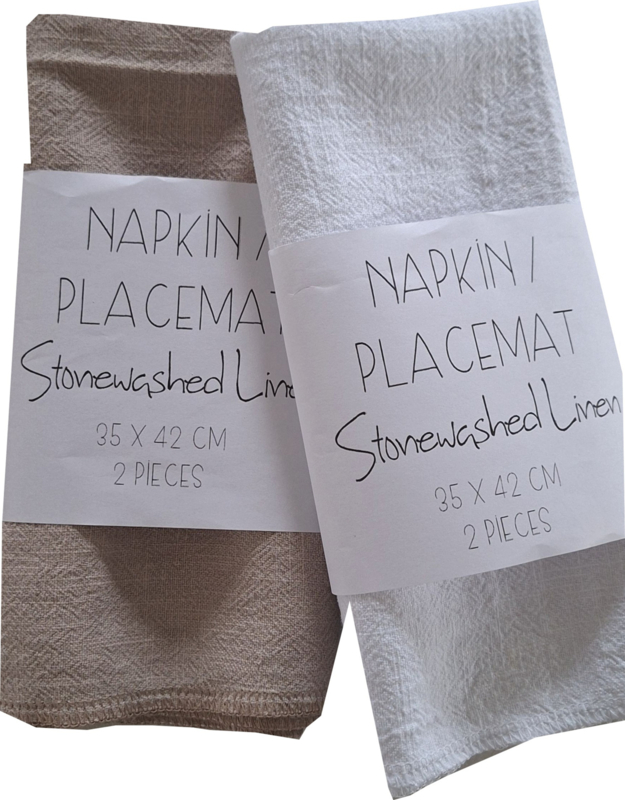 NAPKİN /
PLACEMAT
Stonewashed Line
35 X 42 CM
2 PİECES
NAPKİN /
PLACEMAT
Stonewashed Linen
35 X 42 CM
2 PİECES